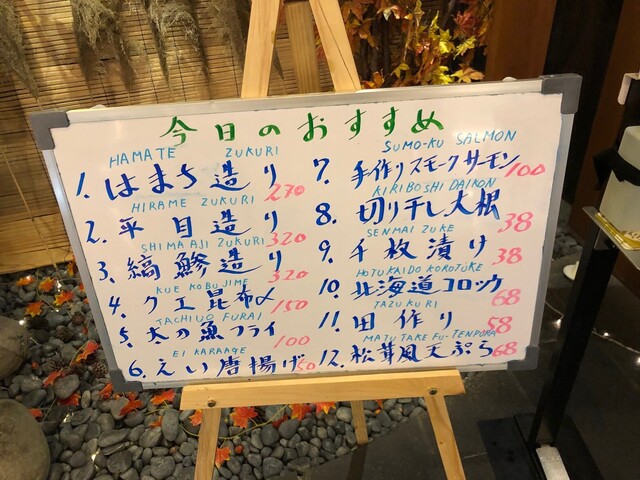 今日のおすすめ
HAMATE ZUKURI
1. はまち造り 270
HIRAME ZUKURI
2. 平目造り 320
SHIMA AJI ZUKURI
3. 縞鯵造り 320
KUE KOBUJIME
4. クエ昆布〆 150
TACHIUO FURAI
5. 太刀魚フライ 100
EI KARAAGE
6. えい唐揚げ 50
SUMO-KU SALMON
7. 手作りスモークサーモン 100
KIRIBOSHI DAIKON
8. 切り干し大根 38
SENMAI ZUKE
9. 千枚漬け 38
HOTUKAIDO KOROTUKE
10. 北海道コロッケ 68
TAZUKURI
11. 田作り 58
MATUTAKE FU-TENPURA
12. 松茸風天ぷら 68